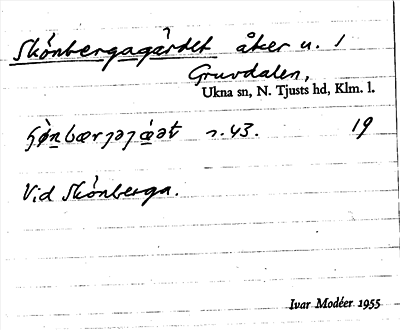 Skönbergagärdet åker u. 1
Gruvdalen,
Ukna sn, N. Tjusts hd, Klm. l.
r. 43. 19
Vid Skönberga.
Ivar Modéer 1955